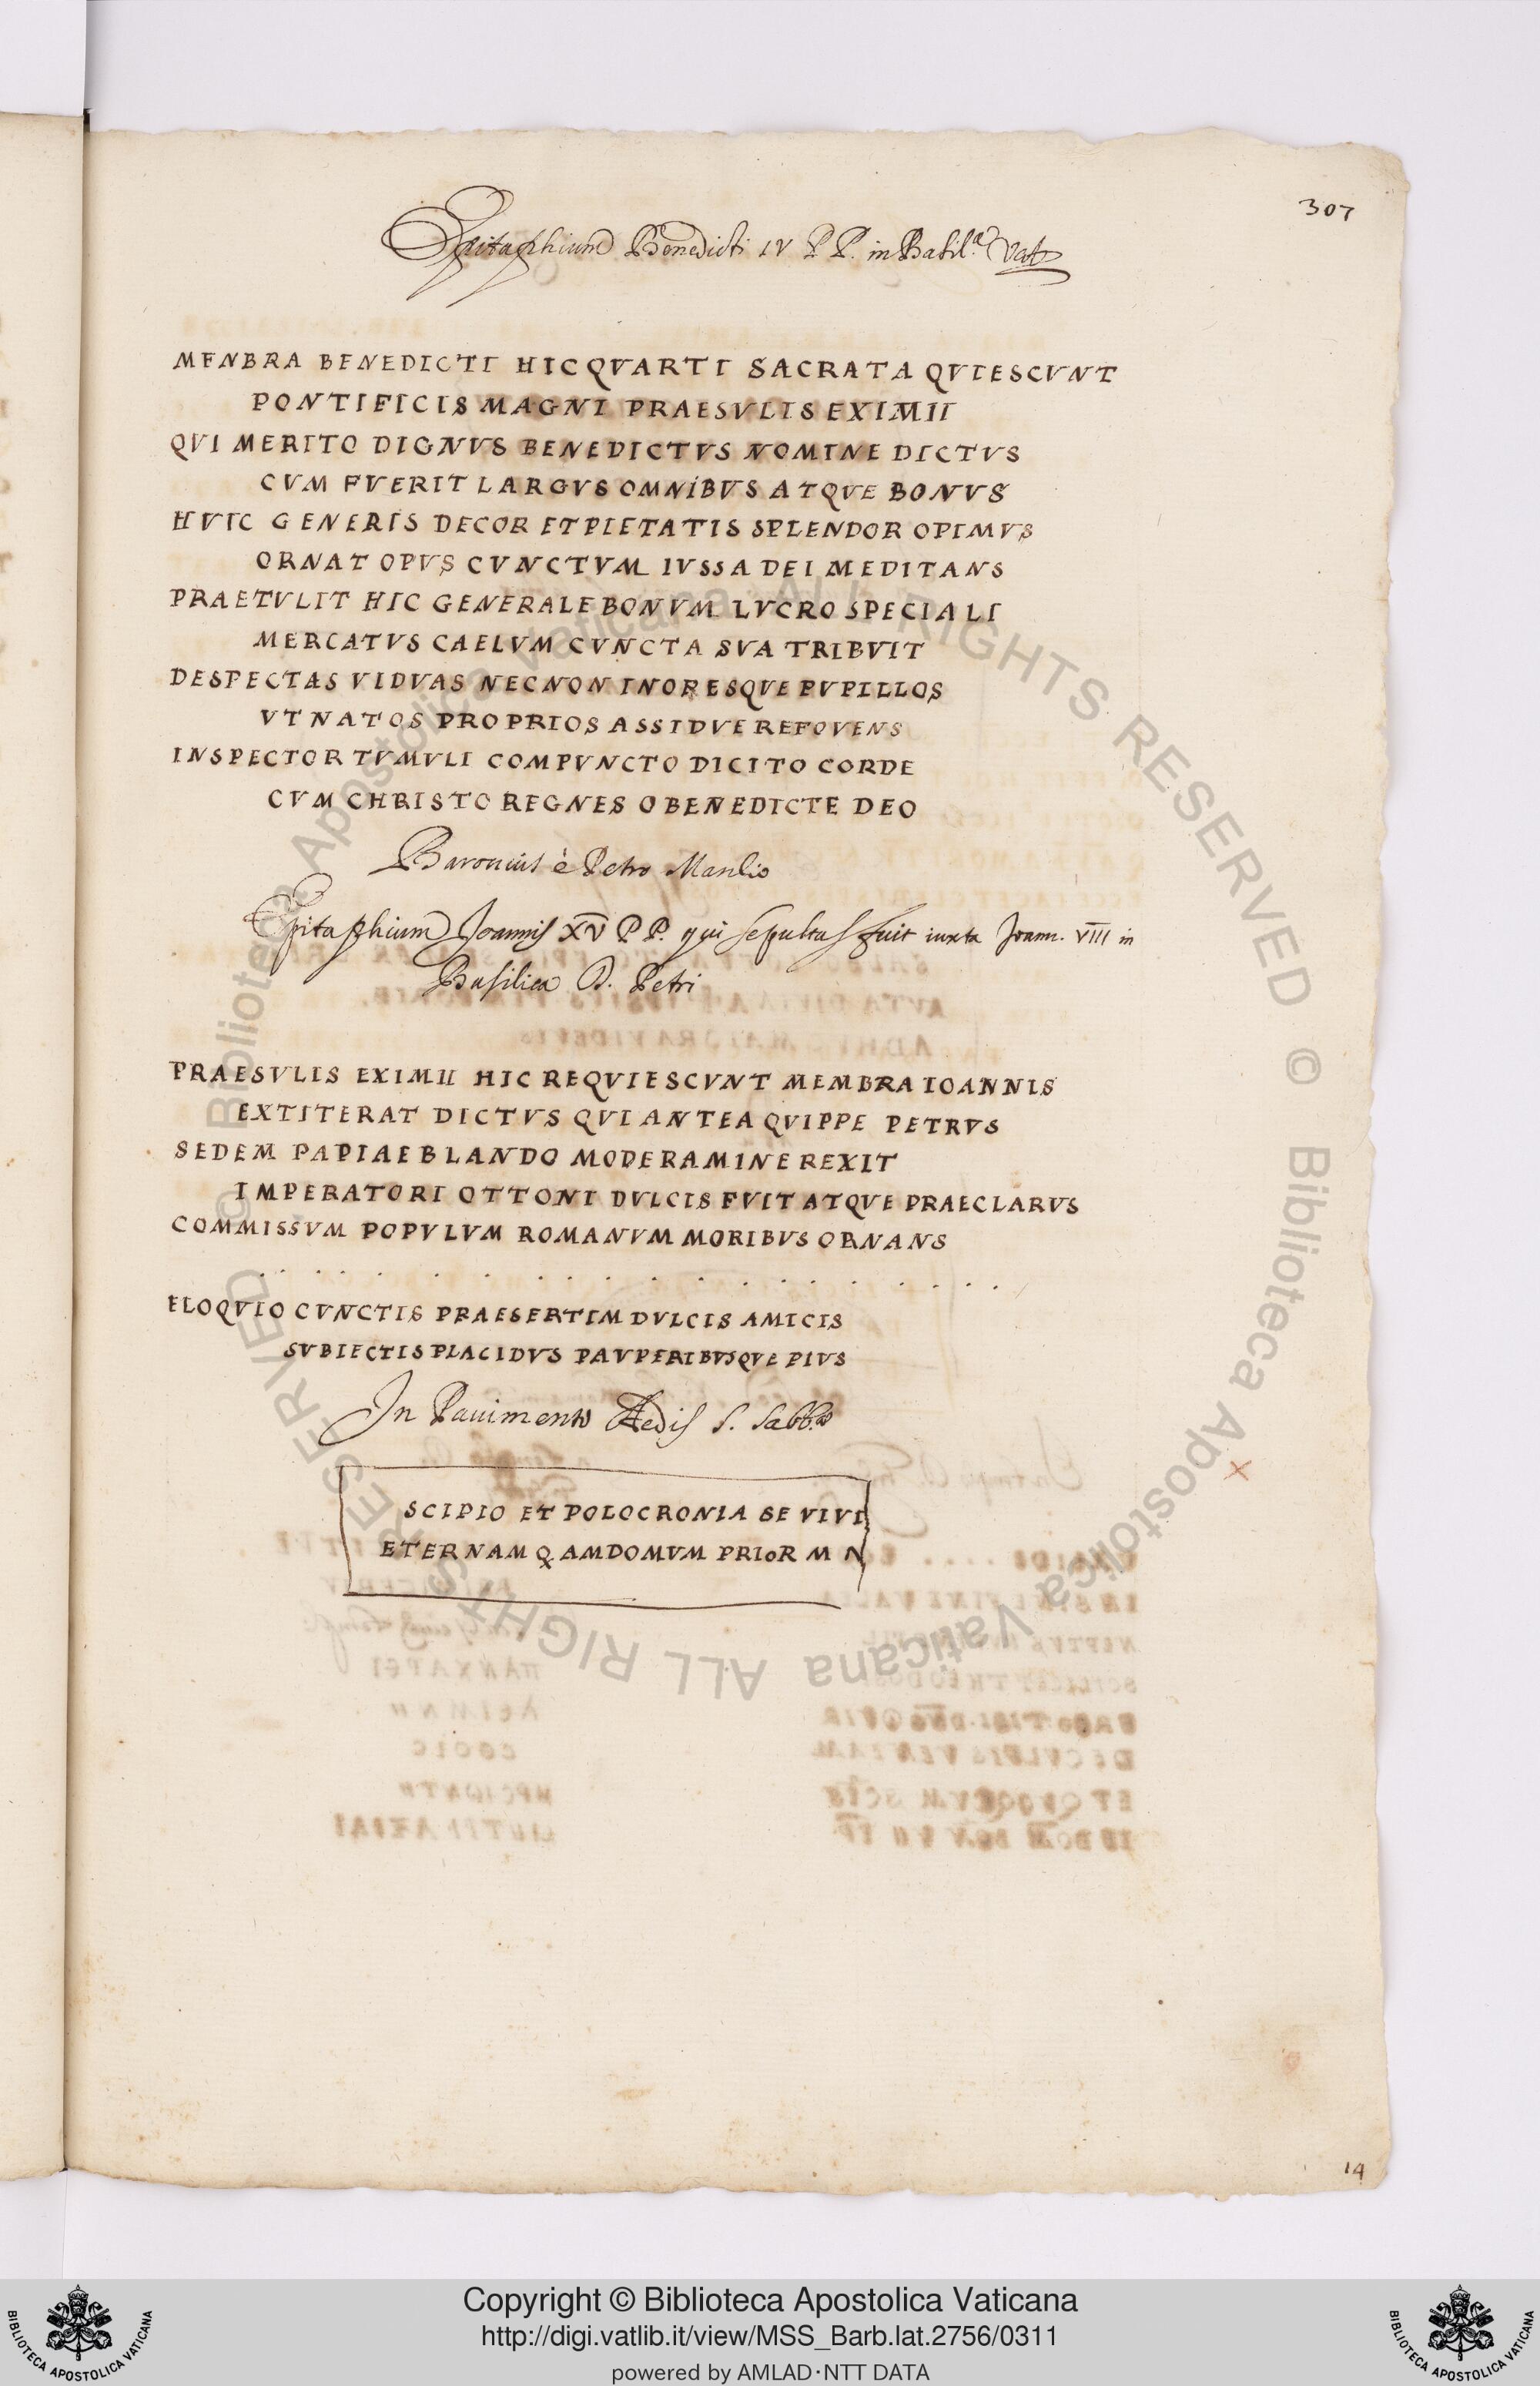 307
Epitaphium Benedicti IV P P. in Basil.ᵃ Vat
MENBRA BENEDICTI HIC QVARTI SACRATA QVIESCVNT
PONTIFICIS MAGNI PRAESVLIS EXIMII
QVI MERITO DIGNVS BENEDICTVS NOMINE DICTVS
CVM FVERIT LARGVS OMNIBVS ATQVE BONVS
HVIC GENERIS DECOR ET PIETATIS SPLENDOR OPIMVS
ORNAT OPVS CVNCTVM IVSSA DEI MEDITANS
PRAETVLIT HIC GENERALE BONVM LVCRO SPECIALI
MERCATVS CAELVM CVNCTA SVA TRIBVIT
DESPECTAS VIDVAS NECNON INOPESQVE PVPILLOS
VT NATOS PROPRIOS ASSIDVE REFOVENS
INSPECTOR TVMVLI COMPVNCTO DICITO CORDE
CVM CHRISTO REGNES O BENEDICTE DEO
Baronius è Petro Manlio
Epitaphium Joannis XV P P. qui sepultus fuit iuxta Joann. VIII in
Basilica D. Petri
PRAESVLIS EXIMII HIC REQVIESCVNT MEMBRA IOANNIS
EXTITERAT DICTVS QVI ANTEA QVIPPE PETRVS
SEDEM PAPIAE BLANDO MODERAMINE REXIT
IMPERATORI OTTONI DVLCIS FVIT ATQVE PRAECLARVS
COMMISSVM POPVLVM ROMANVM MORIBVS ORNANS
. . . . . . . . . . . . . . . . . .
ELOQVIO CVNCTIS PRAESERTIM DVLCIS AMICIS
SVBIECTIS PLACIDVS PAVPERIBVSQVE PIVS
In Pauimento Aedis S. Sabb.ᵃᵉ
SCIPIO ET POLOCRONIA SE VIVI
ETERNAM Q AMDOMVM PRIOR M N
14
© Biblioteca Apostolica Vaticana ALL RIGHTS RESERVED © Biblioteca Apostolica Vaticana ALL RIGHTS RESERVED
Copyright © Biblioteca Apostolica Vaticana
http://digi.vatlib.it/view/MSS_Barb.lat.2756/0311
powered by AMLAD·NTT DATA
BIBLIOTECA APOSTOLICA VATICANA
BIBLIOTECA APOSTOLICA VATICANA